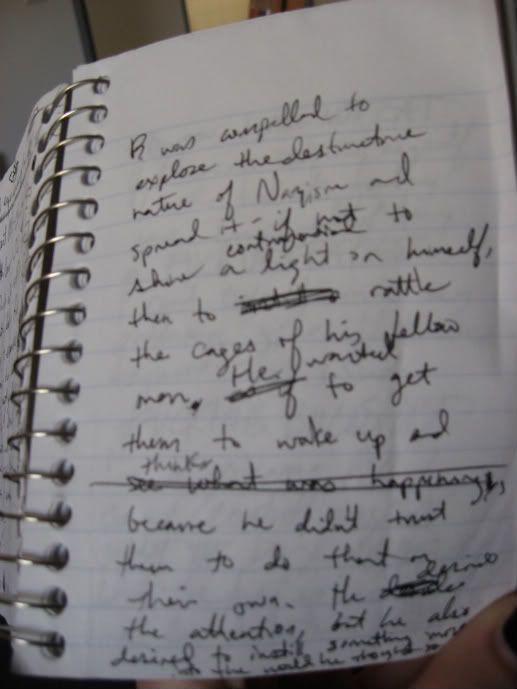 R was compelled to
explore the destructive
nature of Nazism and
spread it - if not to
controversial
shine a light on himself,
then to rattle
the cages of his fellow
man. He wanted
to get
them to wake up and
think
see what was happening,
because he didn't trust
them to do that on
their own. He desired
the attention, but he also
desired to instill something more
into the world he